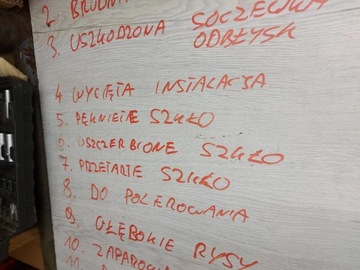 2. BRUDNA
3. USZKODZONA SOCZEWKA
ODBŁYSK
4 WYCIĘTA INSTALACJA
5. PĘKNIĘTE SZKŁO
6. USZCZERBIONE SZKŁO
7. PRZETARTE SZKŁO
8. DO POLEROWANIA
9. GŁĘBOKIE RYSY
10.